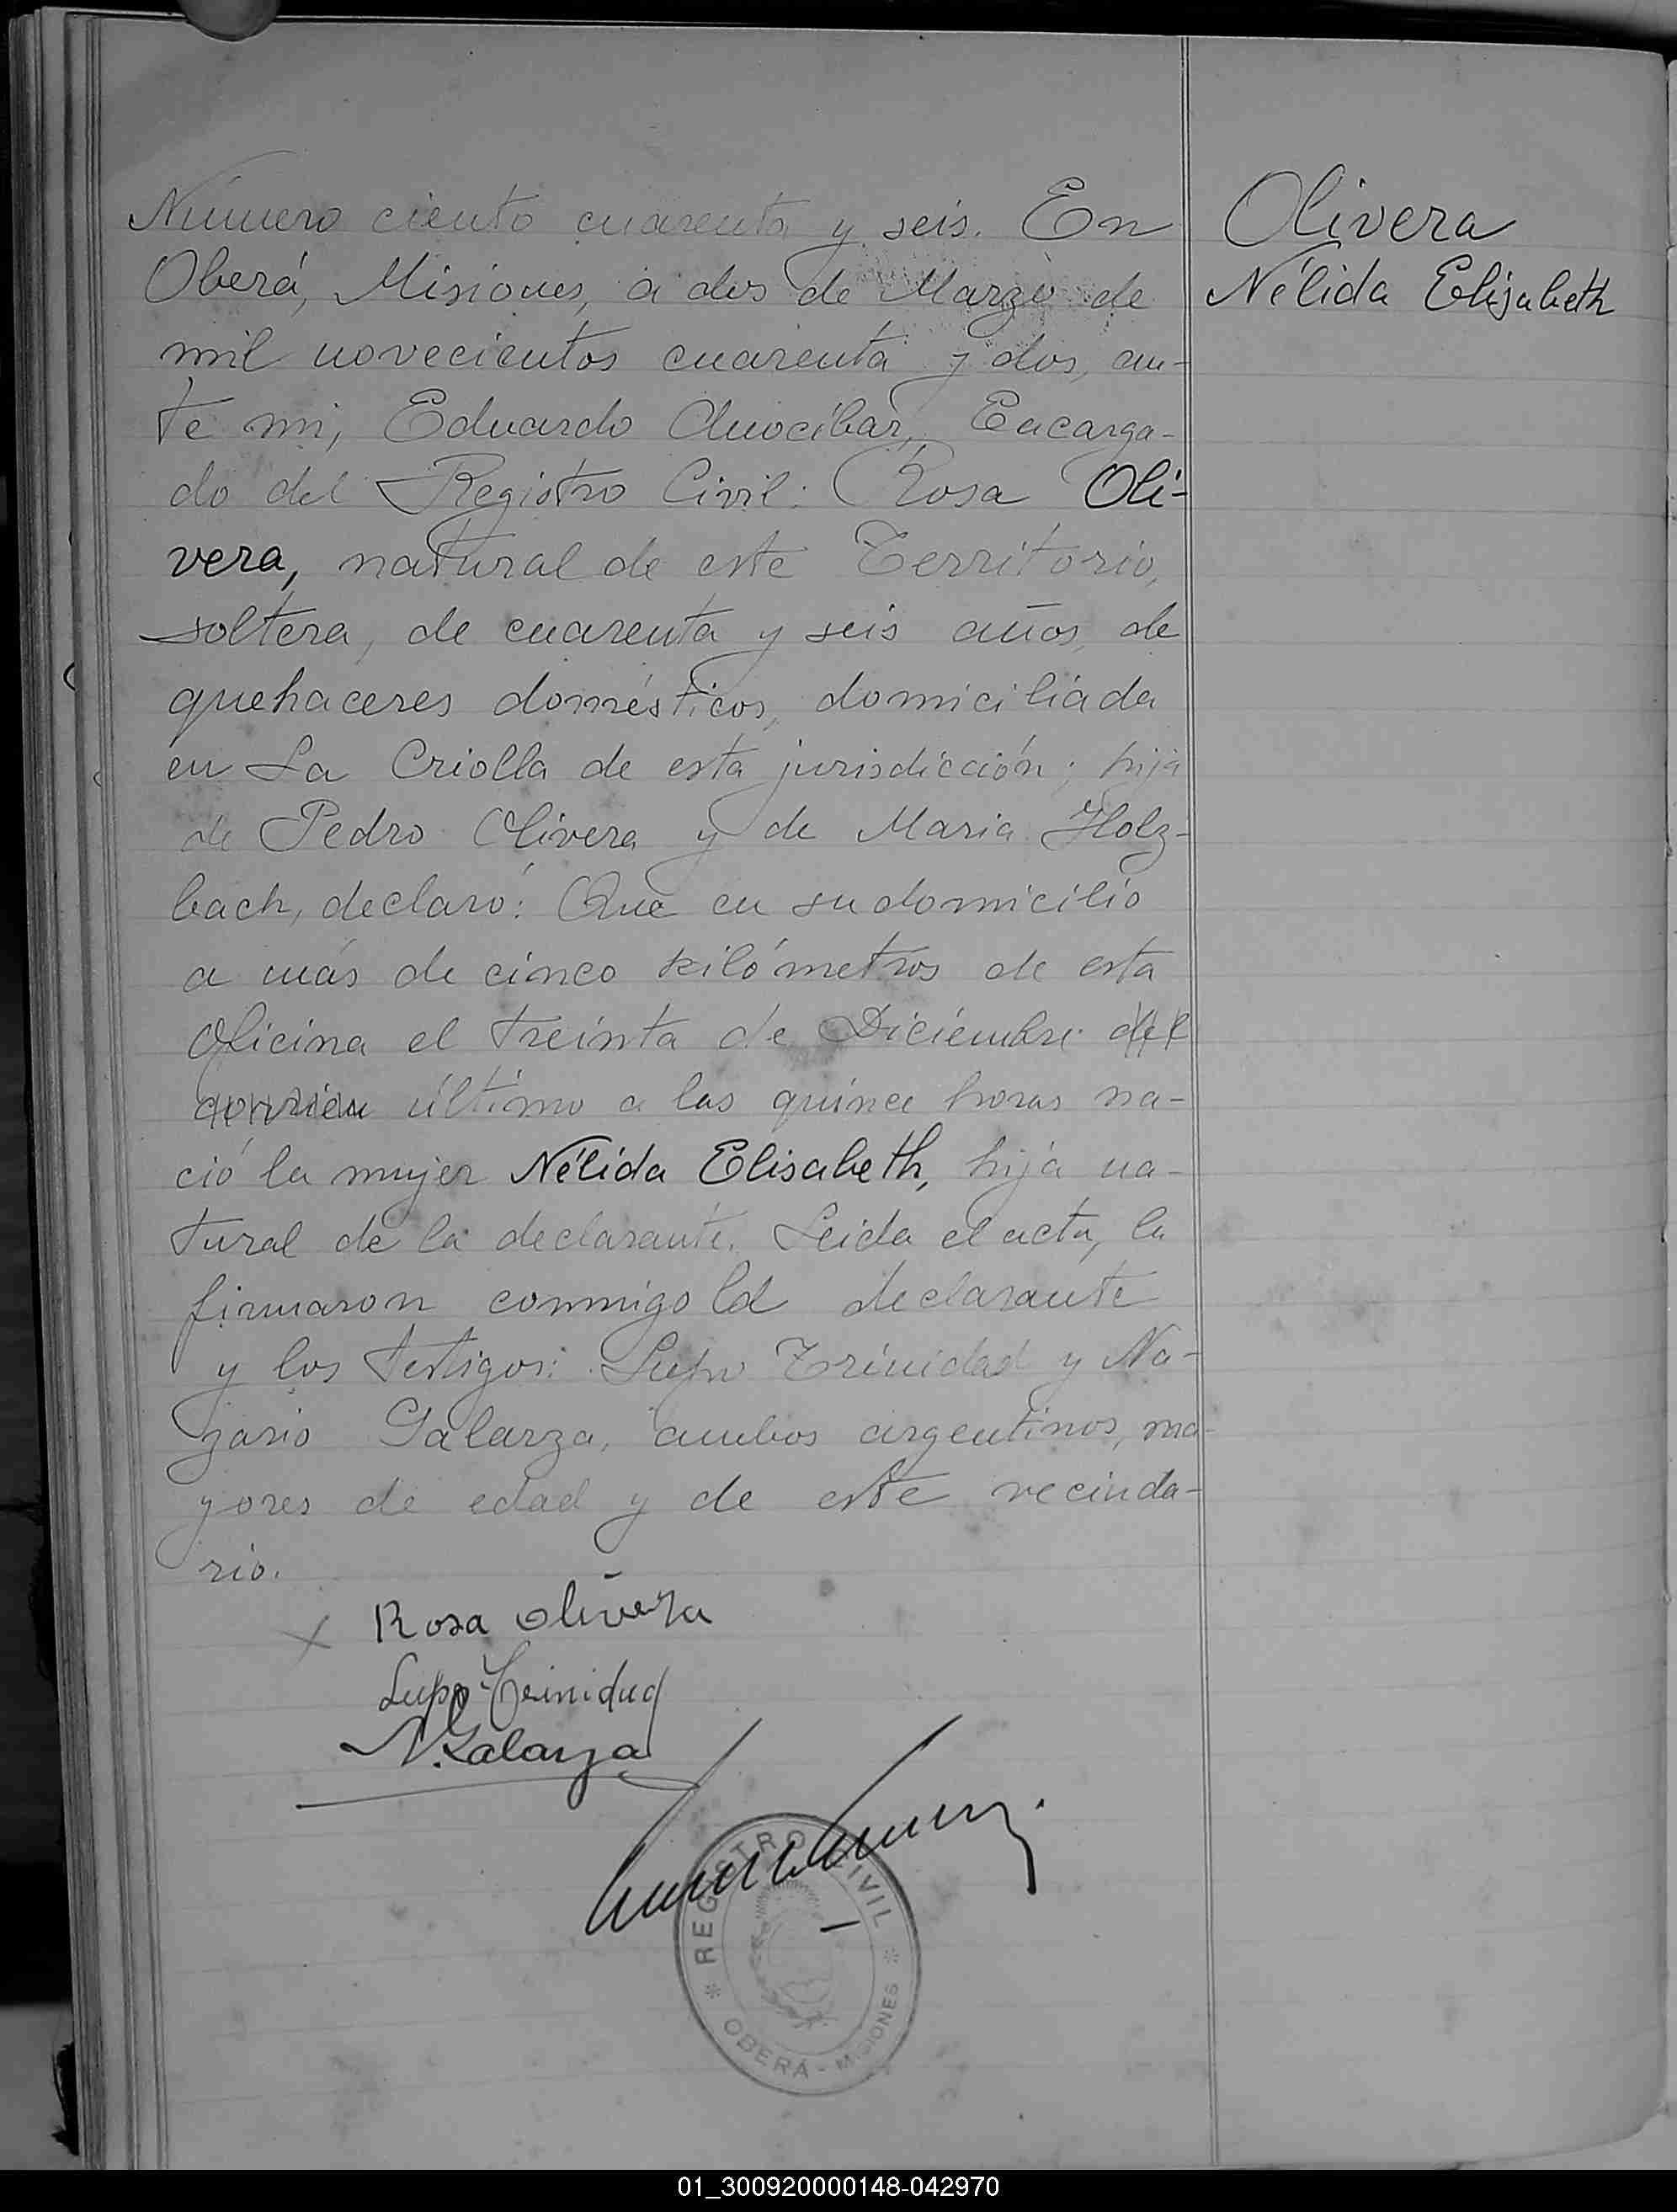 Número ciento cuarenta y seis. En
Oberá, Misiones, a dos de Marzo de
mil novecientos cuarenta y dos, an-
te mi, Eduardo Encarga-
do del Registro Civil: Rosa Oli-
vera, natural de este Territorio,
soltera, de cuarenta y seis años, de
quehaceres domésticos, domiciliada
en La Criolla de esta jurisdicción; hija
de Pedro Olivera y de Maria Holz-
bach, declaró: Que en su domicilio
a más de cinco kilómetros de esta
Oficina el treinta de Diciembre del
último a las quince horas na-
ció la mujer Nélida Elisabeth, hija na-
tural de la declarante. Leida el acta, la
firmaron conmigo la declarante
y los testigos: Lupo Trinidad y Na-
zario Galarza, ambos argentinos, ma-
yores de edad y de este vecinda-
rio.
Rosa Olivera
Lupo Trinidad
N. Galarza
REGISTRO CIVIL
OBERÁ - MISIONES
Olivera
Nélida Elisabeth
01_300920000148-042970